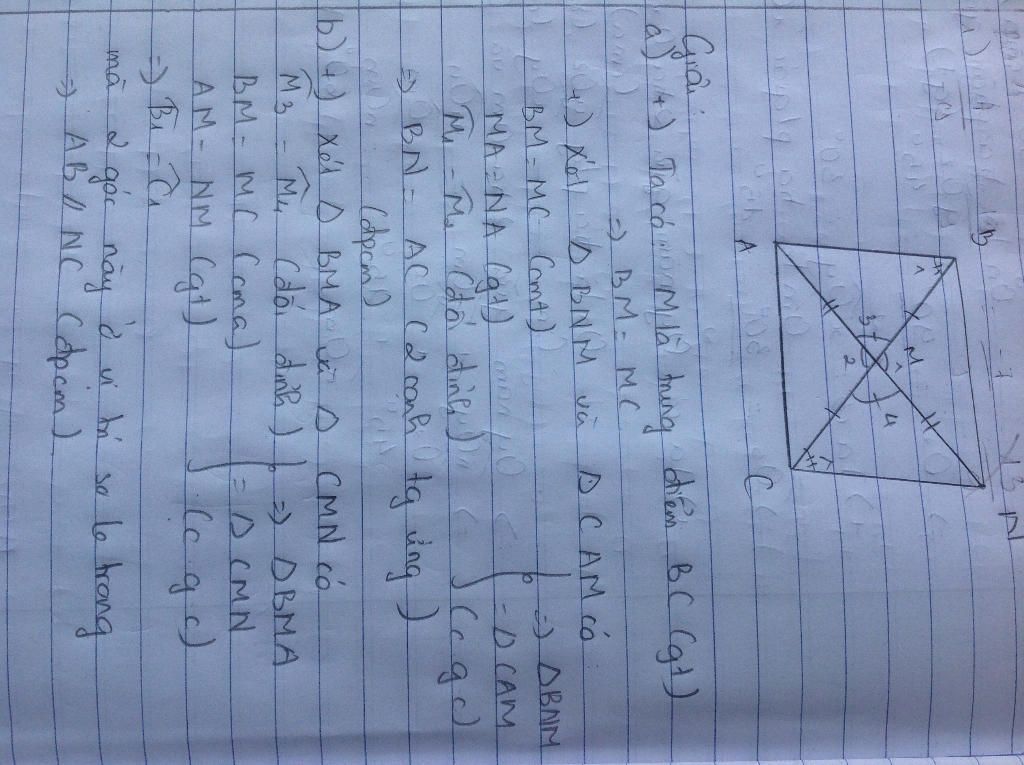 B
N
M
1
1
3
2
4
1
A
C
Giải
a) +) Ta có M là trung điểm BC (gt)
=> BM = MC
+) Xét Δ BNM và Δ CAM có
BM = MC (cmt)
MA = NA (gt)
M̂₁ = M̂₂ (đối đỉnh)
} => ΔBNM = Δ CAM (c g c)
=> BN = AC (2 cạnh tg ứng)
(đpcm)
b) +) Xét Δ BMA và Δ CMN có
M̂3 = M̂4 (đối đỉnh)
BM = MC (cma)
AM = NM (gt)
} => ΔBMA = Δ CMN (c g c)
=> B̂1 = Ĉ1
mà 2 góc này ở vị trí so le trong
=> AB // NC (đpcm)